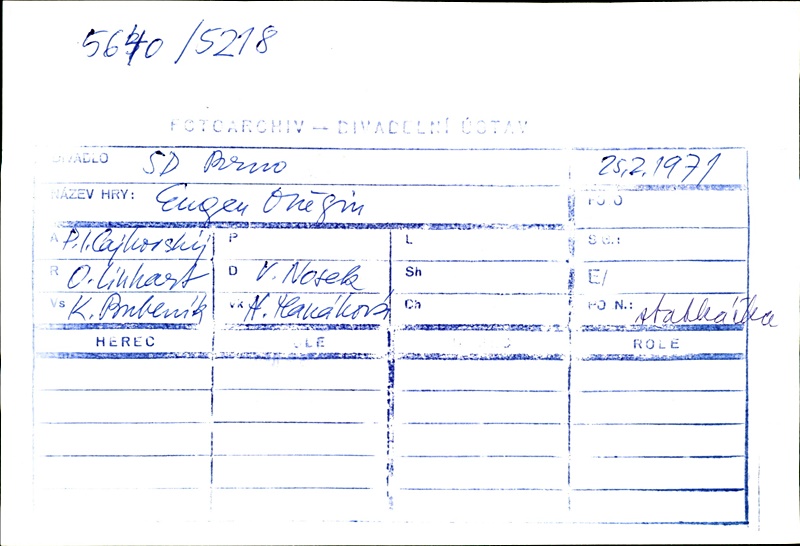 5640 /5218
FOTOARCHIV – DIVADELNÍ ÚSTAV
DIVADLO SD Brno 25.2.1971
NÁZEV HRY: Eugen Oněgin FOTO
A P.I.Čajkovský P L Sig.:
R O. Linhart D V. Nosek Sh E/
Vs K. Bubeník Vk A. Ch PO N.:
HEREC ROLE